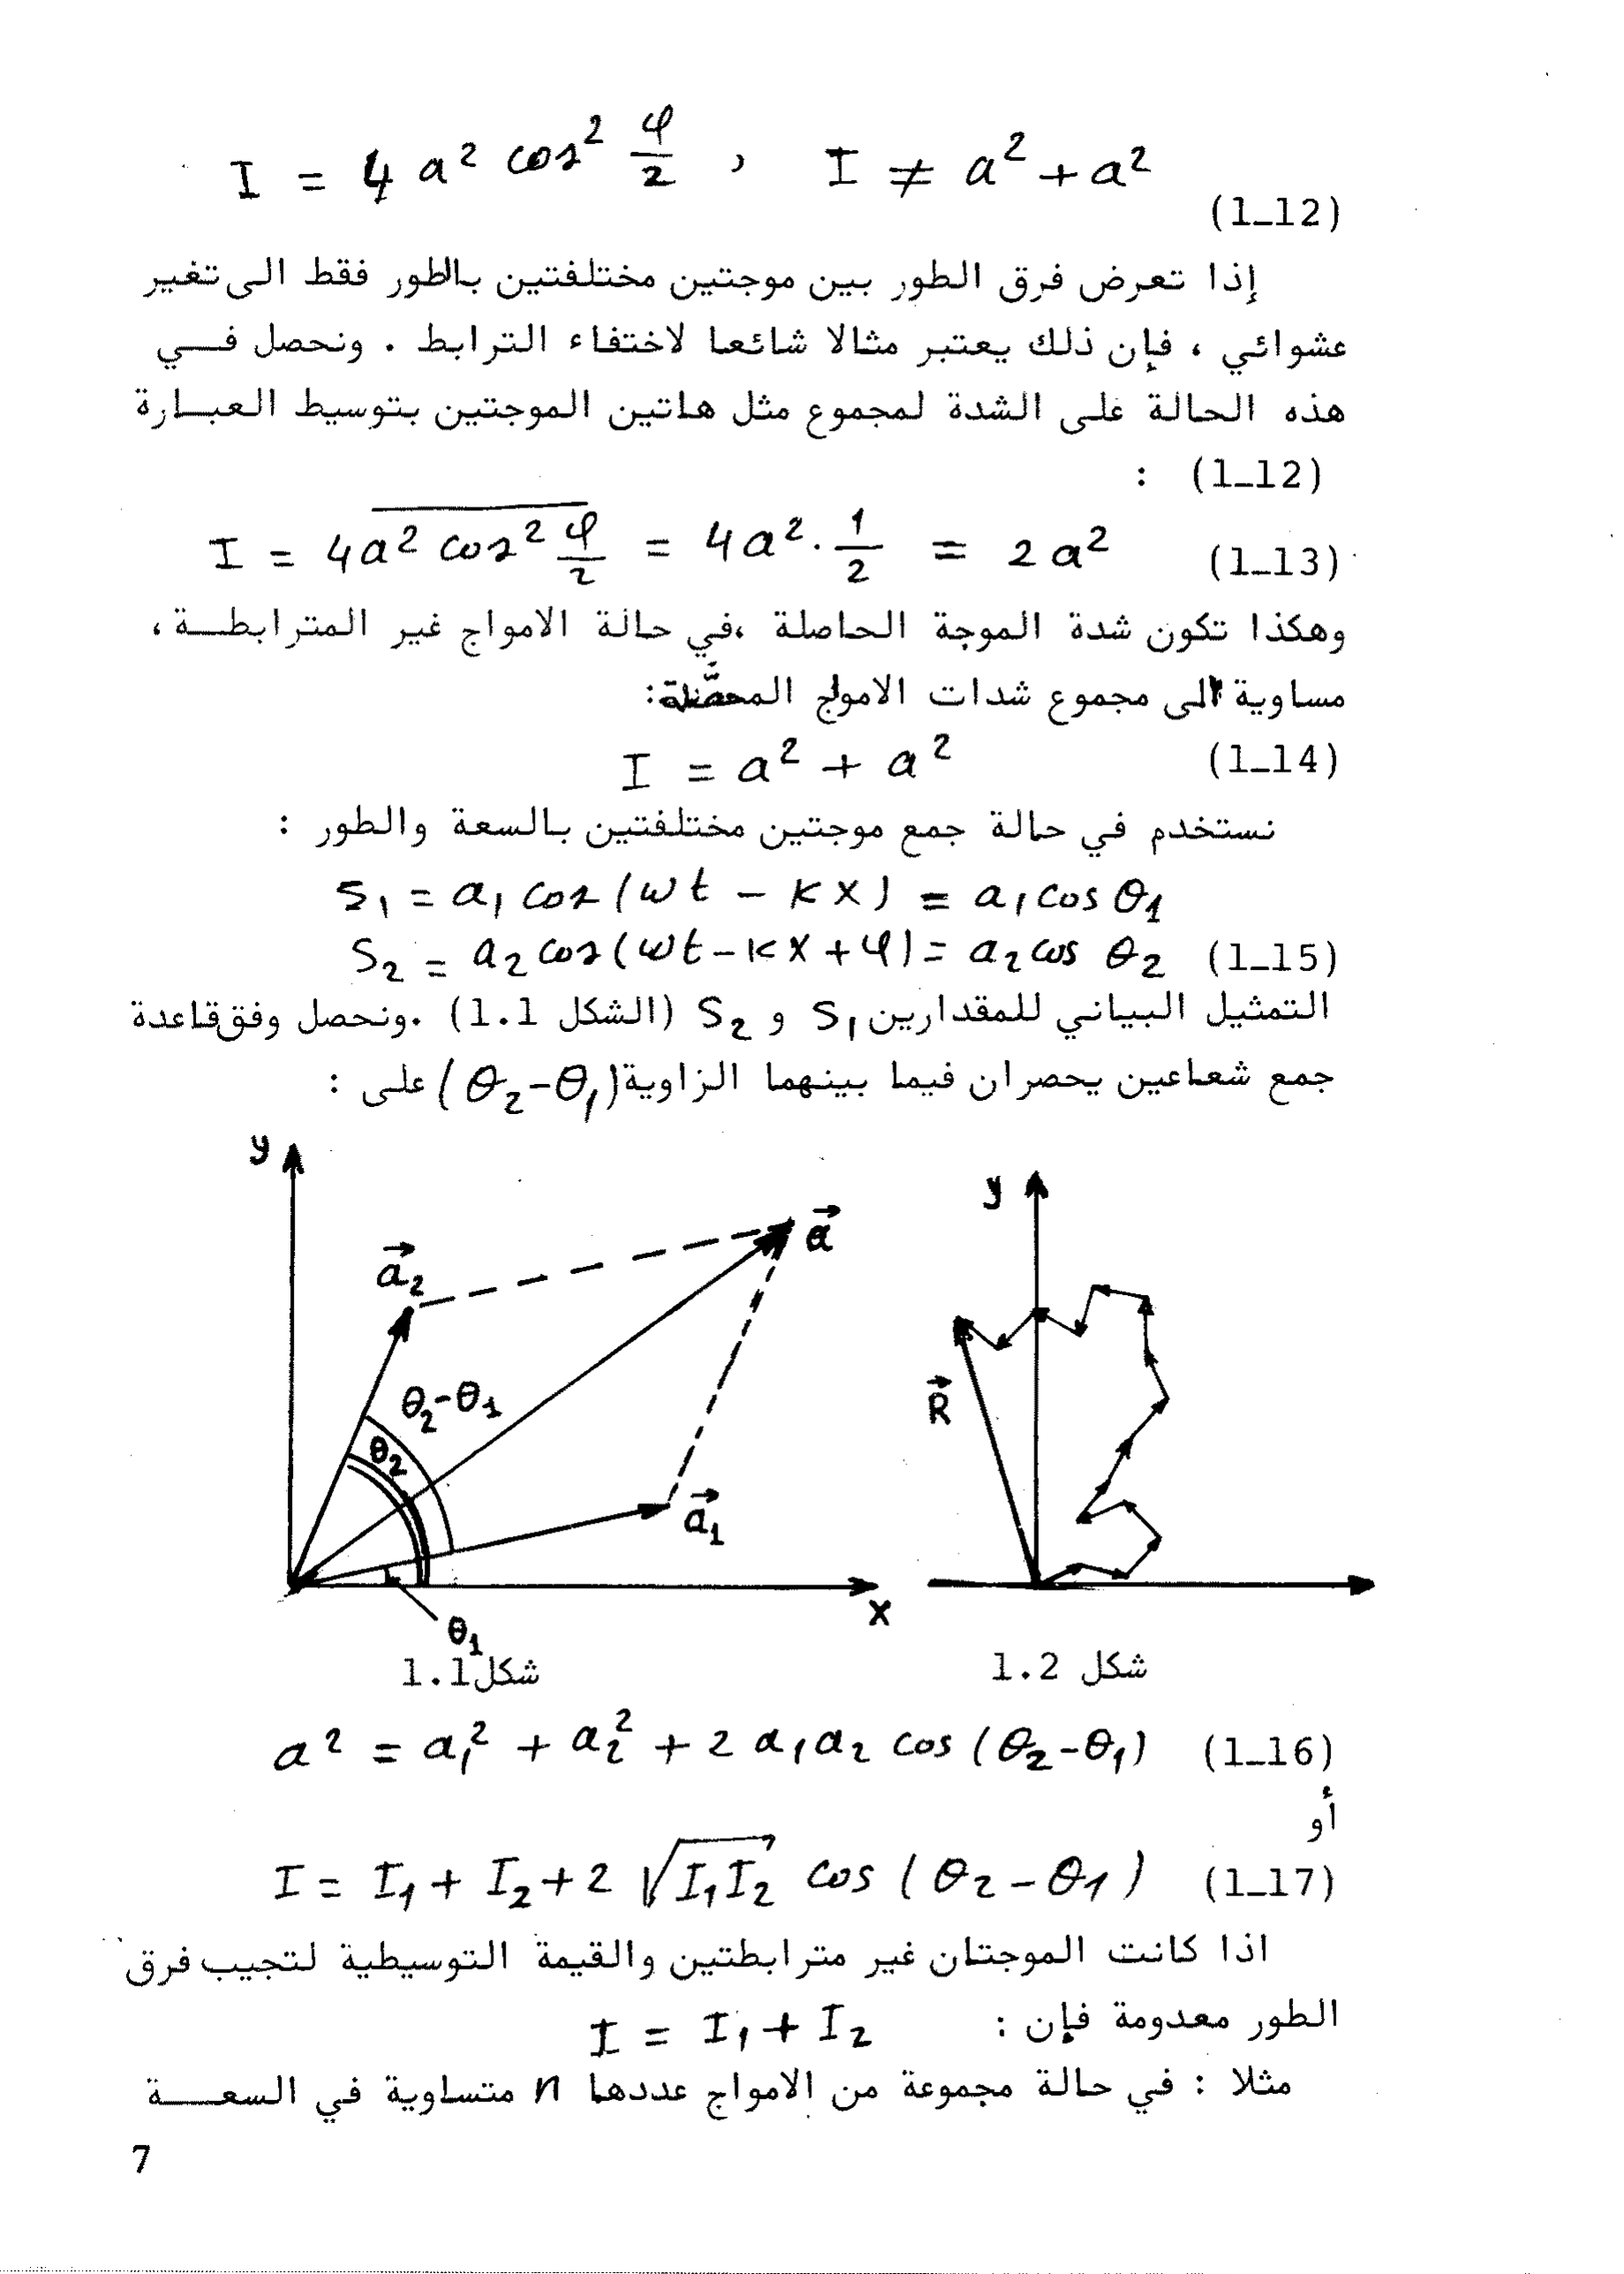 I = 4 a² cos² φ/2 , I ≠ a² + a²
(1_12)
إذا تعرض فرق الطور بين موجتين مختلفتين بالطور فقط الى تغير
عشوائي ، فإن ذلك يعتبر مثالا شائعا لاختفاء الترابط . ونحصل فـــي
هذه الحالة على الشدة لمجموع مثل هاتين الموجتين بتوسيط العبـــارة
(1_12) :
I = 4 a̅²̅ ̅c̅o̅s̅²̅ ̅φ̅/̅2̅ = 4a² . 1/2 = 2 a² (1_13)
وهكذا تكون شدة الموجة الحاصلة ،في حالة الامواج غير المترابطـــة ،
مساوية الى مجموع شدات الامواج المحصَّلة:
I = a² + a² (1_14)
نستخدم في حالة جمع موجتين مختلفتين بالسعة والطور :
S₁ = a₁ cos (ωt - kx) = a₁ cos θ₁
S₂ = a₂ cos (ωt - kx + φ) = a₂ cos θ₂ (1_15)
التمثيل البياني للمقدارين S₁ و S₂ (الشكل 1.1) .ونحصل وفق قاعدة
جمع شعاعين يحصران فيما بينهما الزاوية (θ₂-θ₁) على :
y
a⃗₂
a⃗
θ₂-θ₁
θ₂
a⃗₁
x
θ₁
شكل1.1
y
R⃗
شكل 1.2
a² = a₁² + a₂² + 2 a₁ a₂ cos (θ₂-θ₁) (1_16)
أو
I = I₁ + I₂ + 2 √I₁I₂ cos (θ₂-θ₁) (1_17)
اذا كانت الموجتان غير مترابطتين والقيمة التوسيطية لتجيب فرق
الطور معدومة فإن : I = I₁ + I₂
مثلا : في حالة مجموعة من الامواج عددها n متساوية في السعـــــة
7